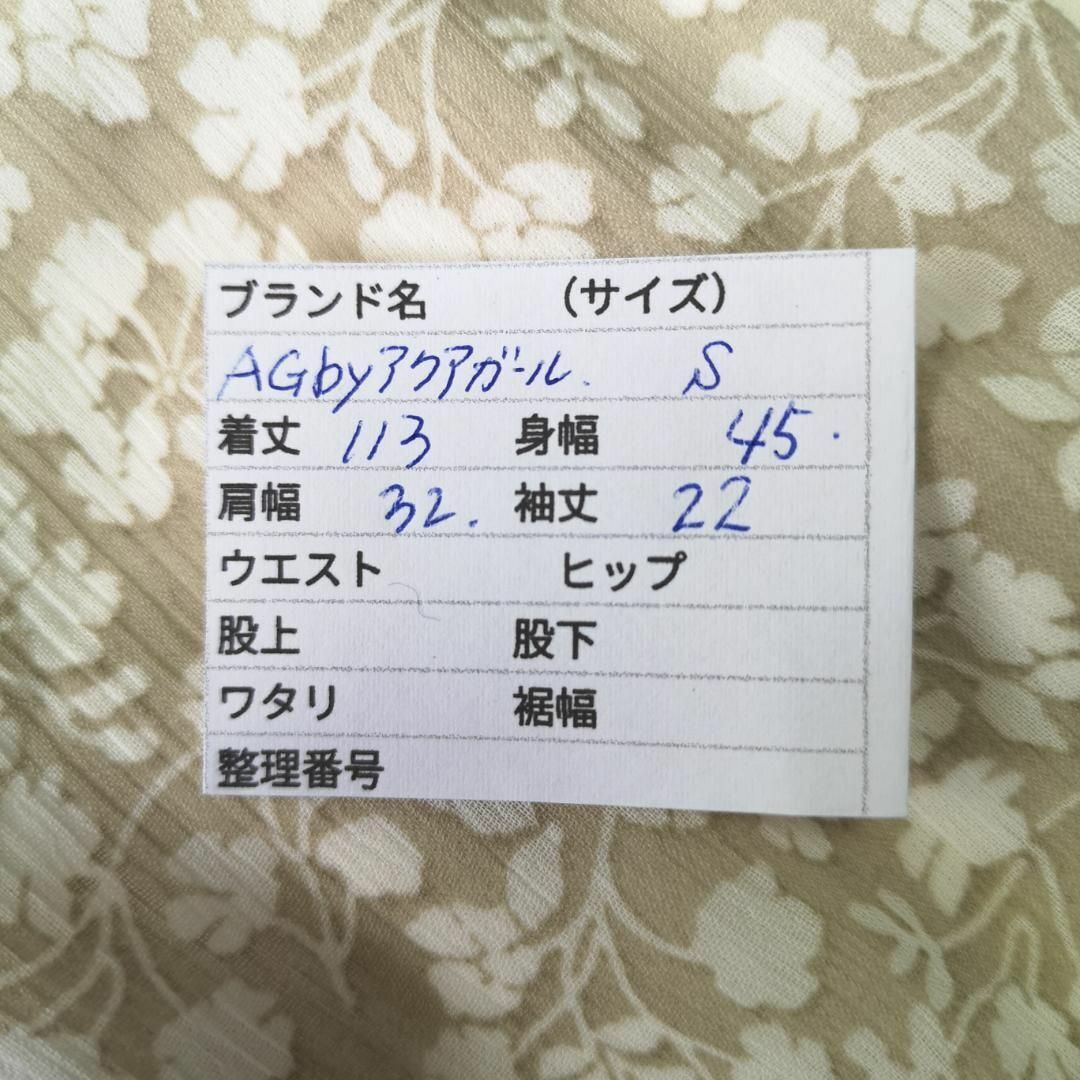 ブランド名 （サイズ）
AGbyアクアガール. S
着丈 113 身幅 45.
肩幅 32. 袖丈 22
ウエスト ヒップ
股上 股下
ワタリ 裾幅
整理番号